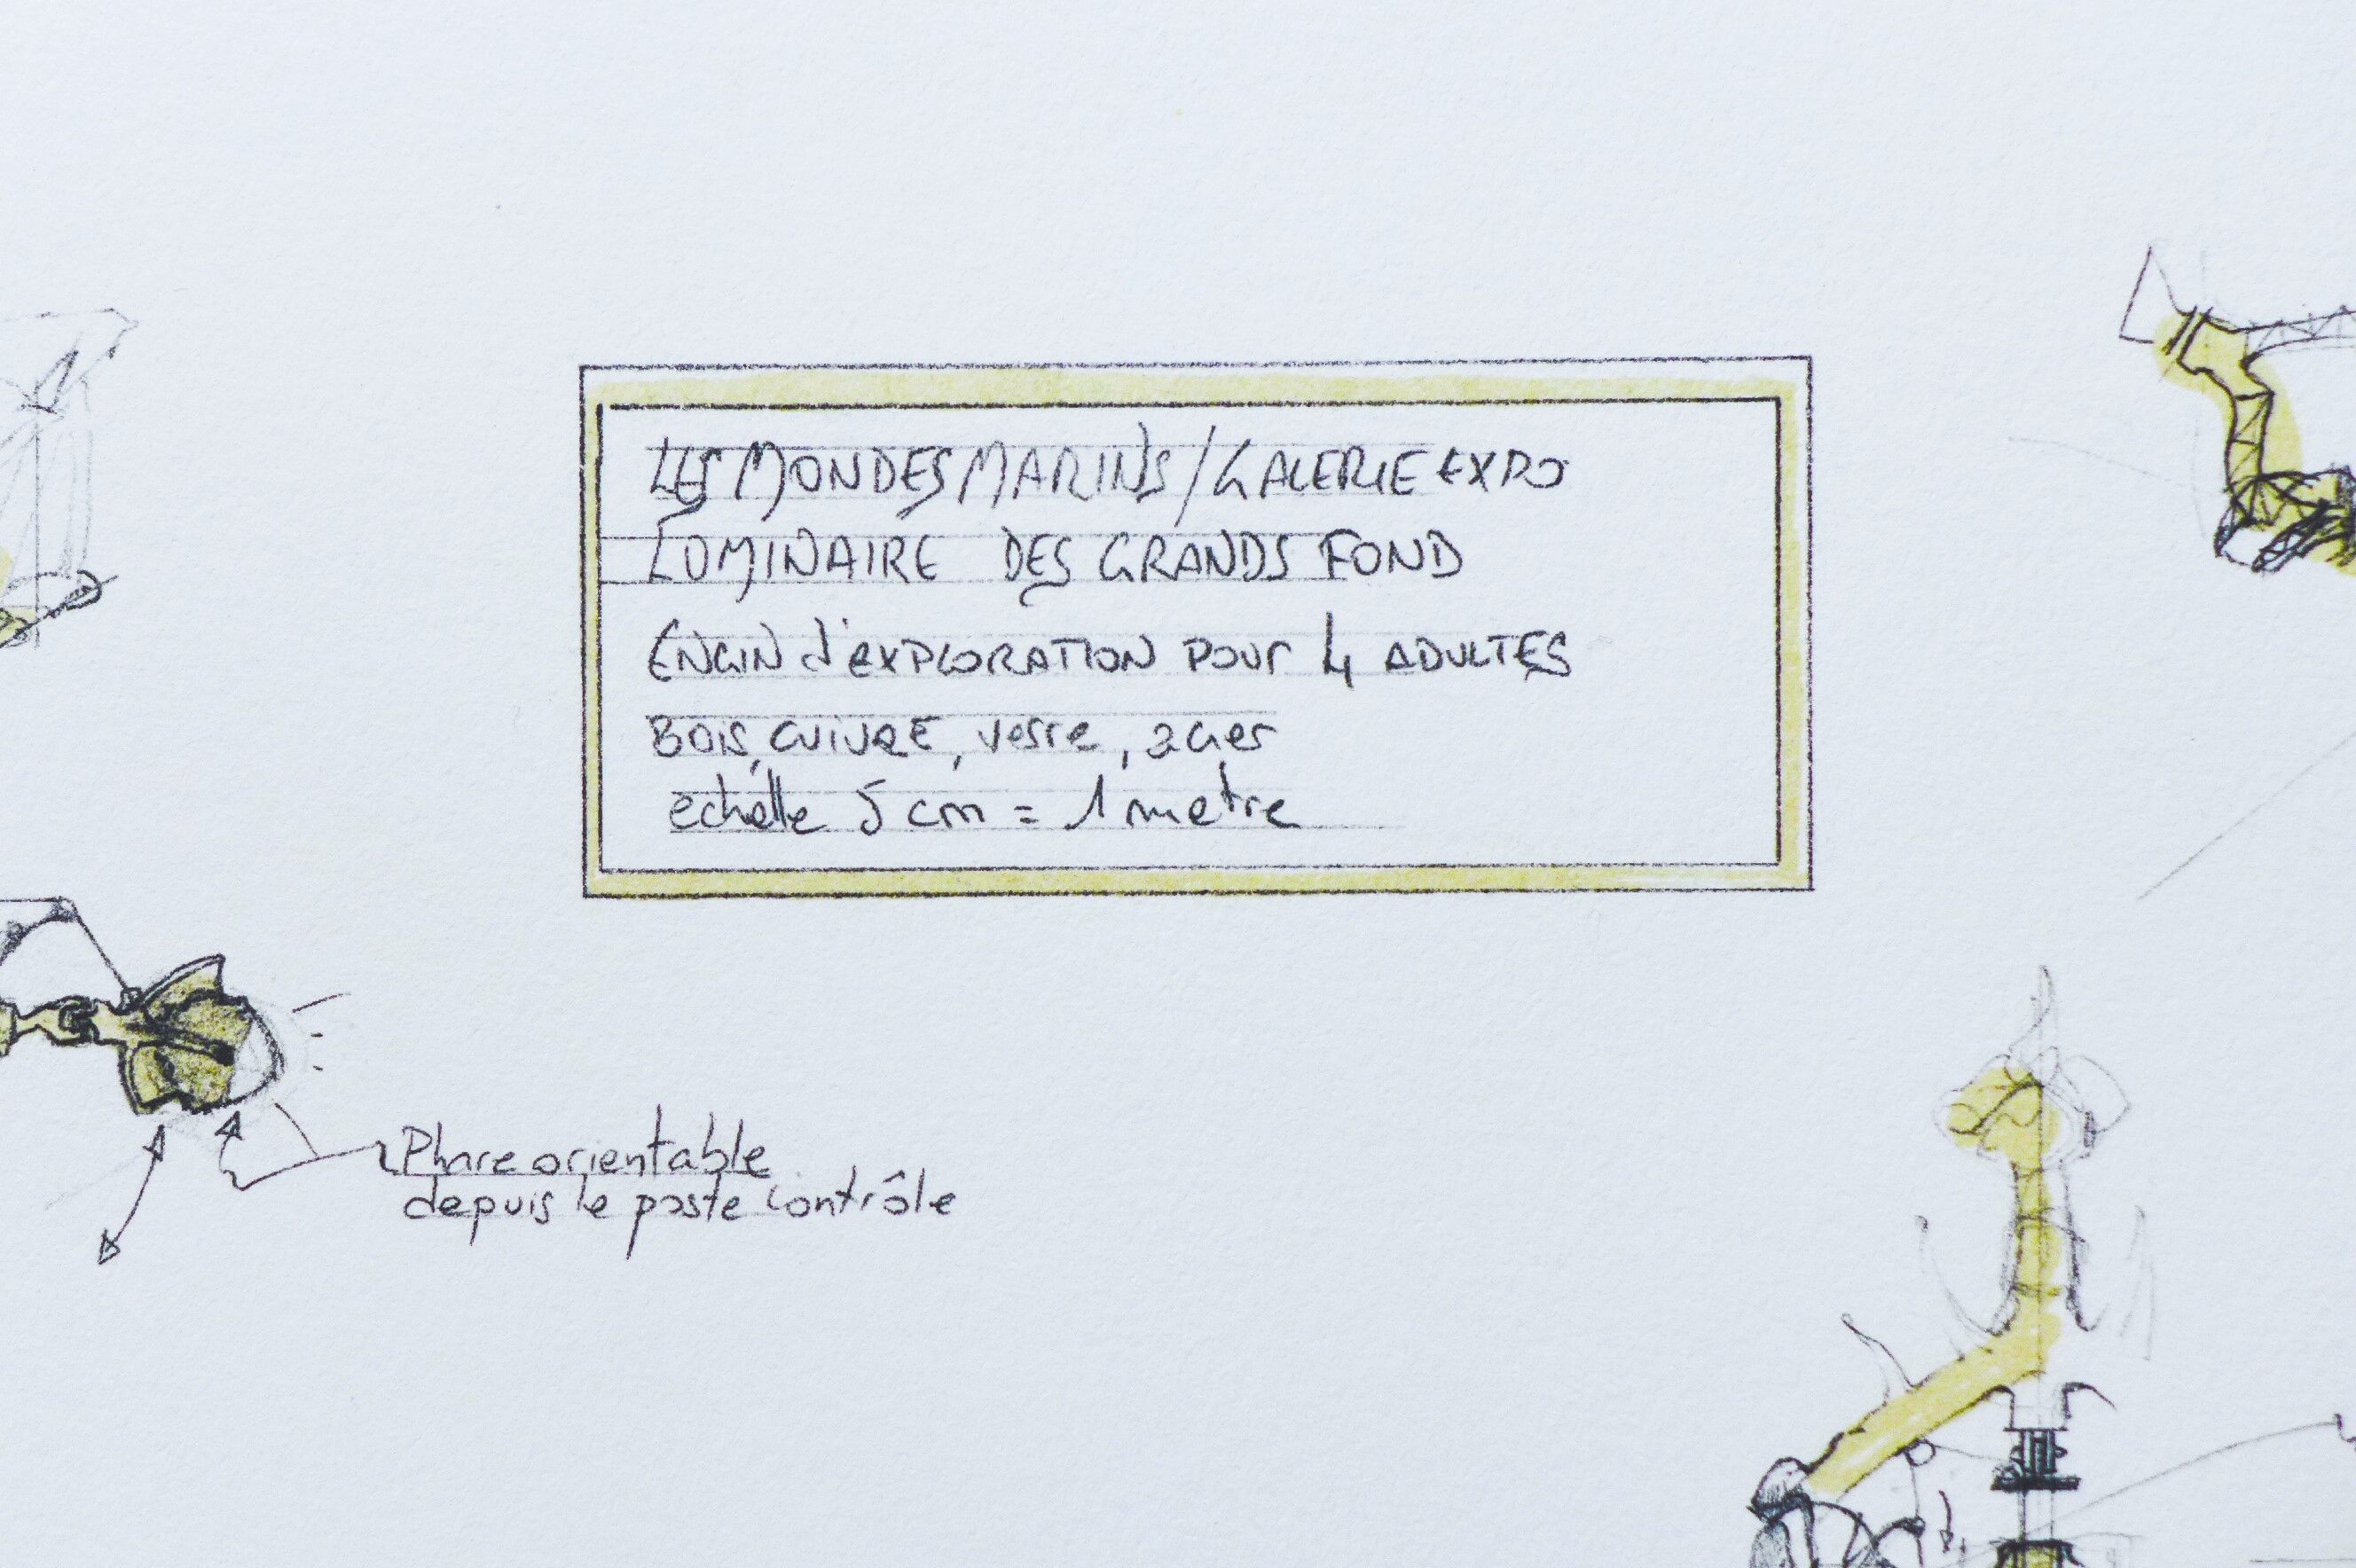 LES MONDES MARINS / GALERIE EXPO
LUMINAIRE DES GRANDS FOND
ENGIN d'EXPLORATION POUR 4 ADULTES
BOIS, CUIVRE, verre, acier
echelle 5 cm = 1 metre
Phare orientable
depuis le poste contrôle